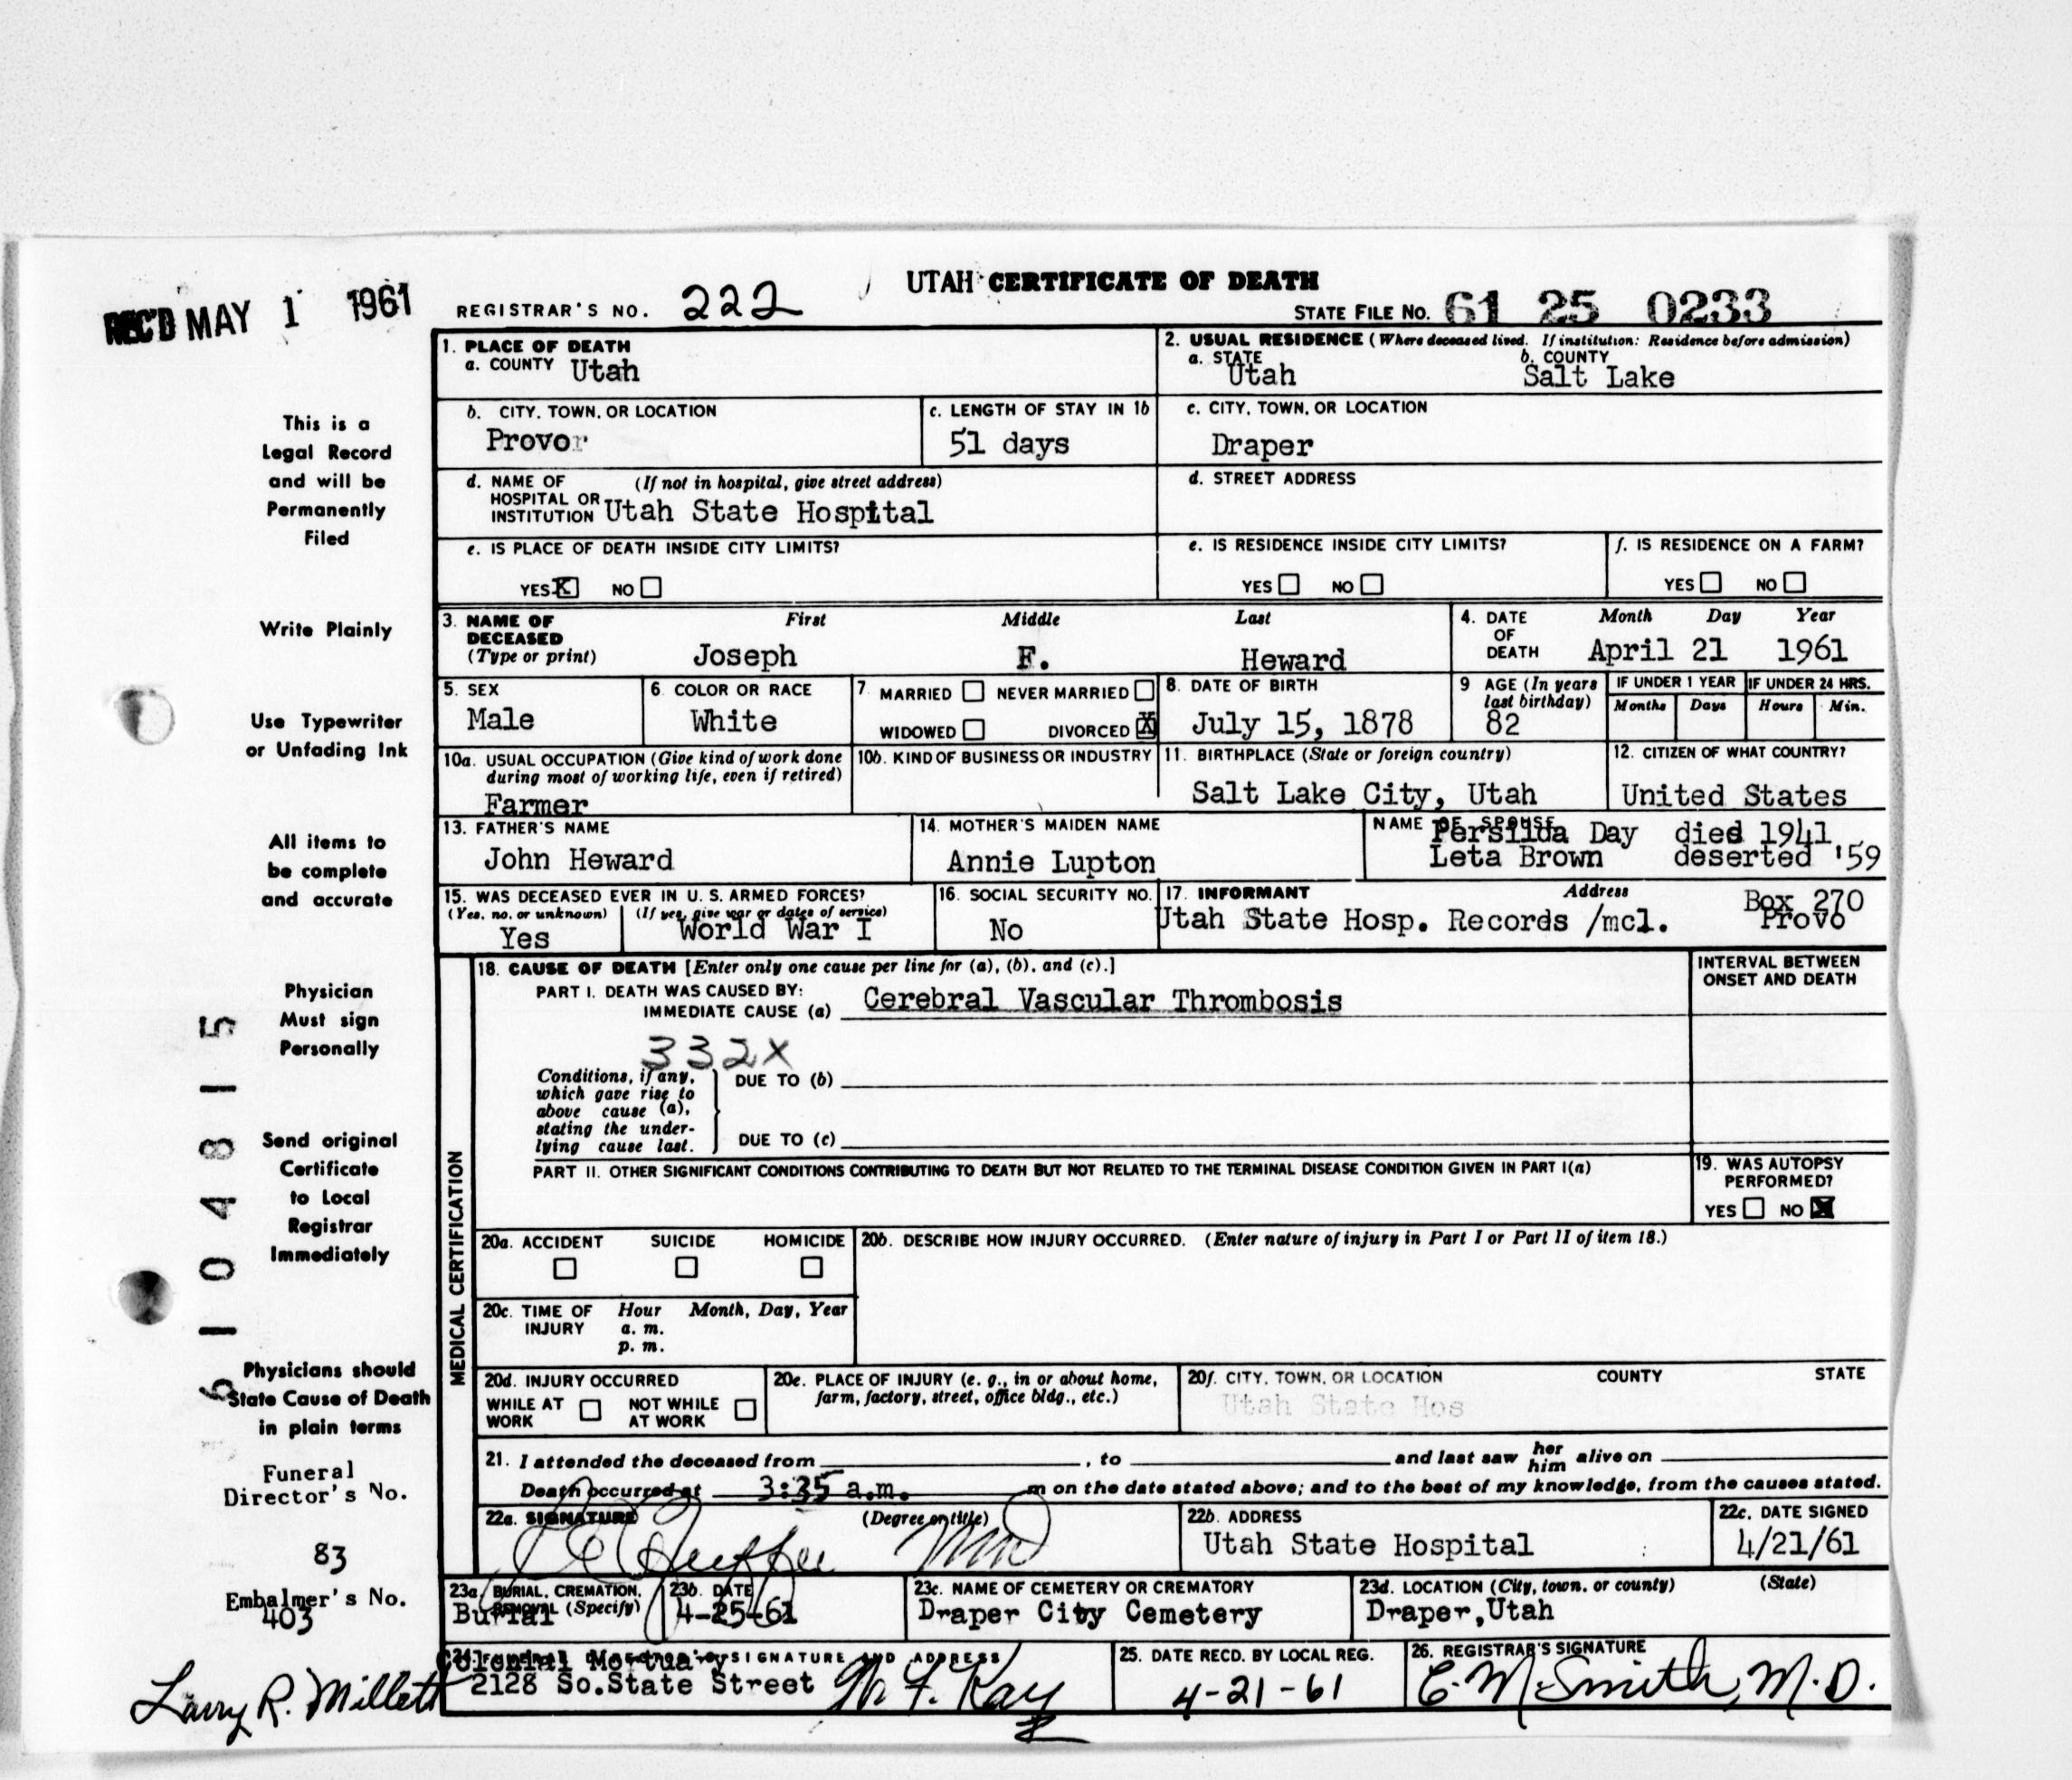 UTAH CERTIFICATE OF DEATH
REC'D MAY 1 1961
REGISTRAR'S NO. 222
STATE FILE NO. 61 25 0233
1. PLACE OF DEATH
a. COUNTY Utah
2. USUAL RESIDENCE (Where deceased lived. If institution: Residence before admission)
a. STATE Utah b. COUNTY Salt Lake
b. CITY, TOWN, OR LOCATION
Provo
c. LENGTH OF STAY IN 1b
51 days
c. CITY, TOWN, OR LOCATION
Draper
d. NAME OF HOSPITAL OR INSTITUTION (If not in hospital, give street address)
Utah State Hospital
d. STREET ADDRESS
e. IS PLACE OF DEATH INSIDE CITY LIMITS?
YES X NO
e. IS RESIDENCE INSIDE CITY LIMITS?
YES NO
f. IS RESIDENCE ON A FARM?
YES NO
3. NAME OF DECEASED (Type or print)
First Middle Last
Joseph F. Heward
4. DATE OF DEATH
Month Day Year
April 21 1961
5. SEX
Male
6. COLOR OR RACE
White
7. MARRIED NEVER MARRIED
WIDOWED DIVORCED X
8. DATE OF BIRTH
July 15, 1878
9 AGE (In years last birthday)
82
IF UNDER 1 YEAR
Months Days
IF UNDER 24 HRS.
Hours Min.
10a. USUAL OCCUPATION (Give kind of work done during most of working life, even if retired)
Farmer
10b. KIND OF BUSINESS OR INDUSTRY
11. BIRTHPLACE (State or foreign country)
Salt Lake City, Utah
12. CITIZEN OF WHAT COUNTRY?
United States
13. FATHER'S NAME
John Heward
14. MOTHER'S MAIDEN NAME
Annie Lupton
NAME OF SPOUSE
Persilda Day died 1941
Leta Brown deserted '59
15. WAS DECEASED EVER IN U. S. ARMED FORCES?
(Yes, no, or unknown) (If yes, give war or dates of service)
Yes World War I
16. SOCIAL SECURITY NO.
No
17. INFORMANT Address
Utah State Hosp. Records /mcl. Box 270 Provo
MEDICAL CERTIFICATION
18. CAUSE OF DEATH [Enter only one cause per line for (a), (b), and (c).]
PART I. DEATH WAS CAUSED BY:
IMMEDIATE CAUSE (a) Cerebral Vascular Thrombosis
INTERVAL BETWEEN ONSET AND DEATH
332X
Conditions, if any, which gave rise to above cause (a), stating the underlying cause last.
DUE TO (b)
DUE TO (c)
PART II. OTHER SIGNIFICANT CONDITIONS CONTRIBUTING TO DEATH BUT NOT RELATED TO THE TERMINAL DISEASE CONDITION GIVEN IN PART I(a)
19. WAS AUTOPSY PERFORMED?
YES NO X
20a. ACCIDENT SUICIDE HOMICIDE
20b. DESCRIBE HOW INJURY OCCURRED. (Enter nature of injury in Part I or Part II of item 18.)
20c. TIME OF INJURY
Hour Month, Day, Year
a. m.
p. m.
20d. INJURY OCCURRED
WHILE AT WORK NOT WHILE AT WORK
20e. PLACE OF INJURY (e. g., in or about home, farm, factory, street, office bldg., etc.)
20f. CITY, TOWN, OR LOCATION COUNTY STATE
Utah State Hos
21. I attended the deceased from , to and last saw her him alive on
Death occurred at 3:35 a.m. m on the date stated above; and to the best of my knowledge, from the causes stated.
22a. SIGNATURE (Degree or title)
MD
22b. ADDRESS
Utah State Hospital
22c. DATE SIGNED
4/21/61
23a. BURIAL, CREMATION, REMOVAL (Specify)
Burial
23b. DATE
4-25-61
23c. NAME OF CEMETERY OR CREMATORY
Draper City Cemetery
23d. LOCATION (City, town, or county) (State)
Draper, Utah
24. FUNERAL DIRECTOR'S SIGNATURE AND ADDRESS
Colonial Mortuary
2128 So. State Street
25. DATE RECD. BY LOCAL REG.
4-21-61
26. REGISTRAR'S SIGNATURE
E. M. Smith, M. D.
This is a
Legal Record
and will be
Permanently
Filed
Write Plainly
Use Typewriter
or Unfading Ink
All items to
be complete
and accurate
Physician
Must sign
Personally
Send original
Certificate
to Local
Registrar
Immediately
Physicians should
State Cause of Death
in plain terms
Funeral
Director's No.
83
Embalmer's No.
403
Larry R. Millett
6 1 0 4 8 1 5